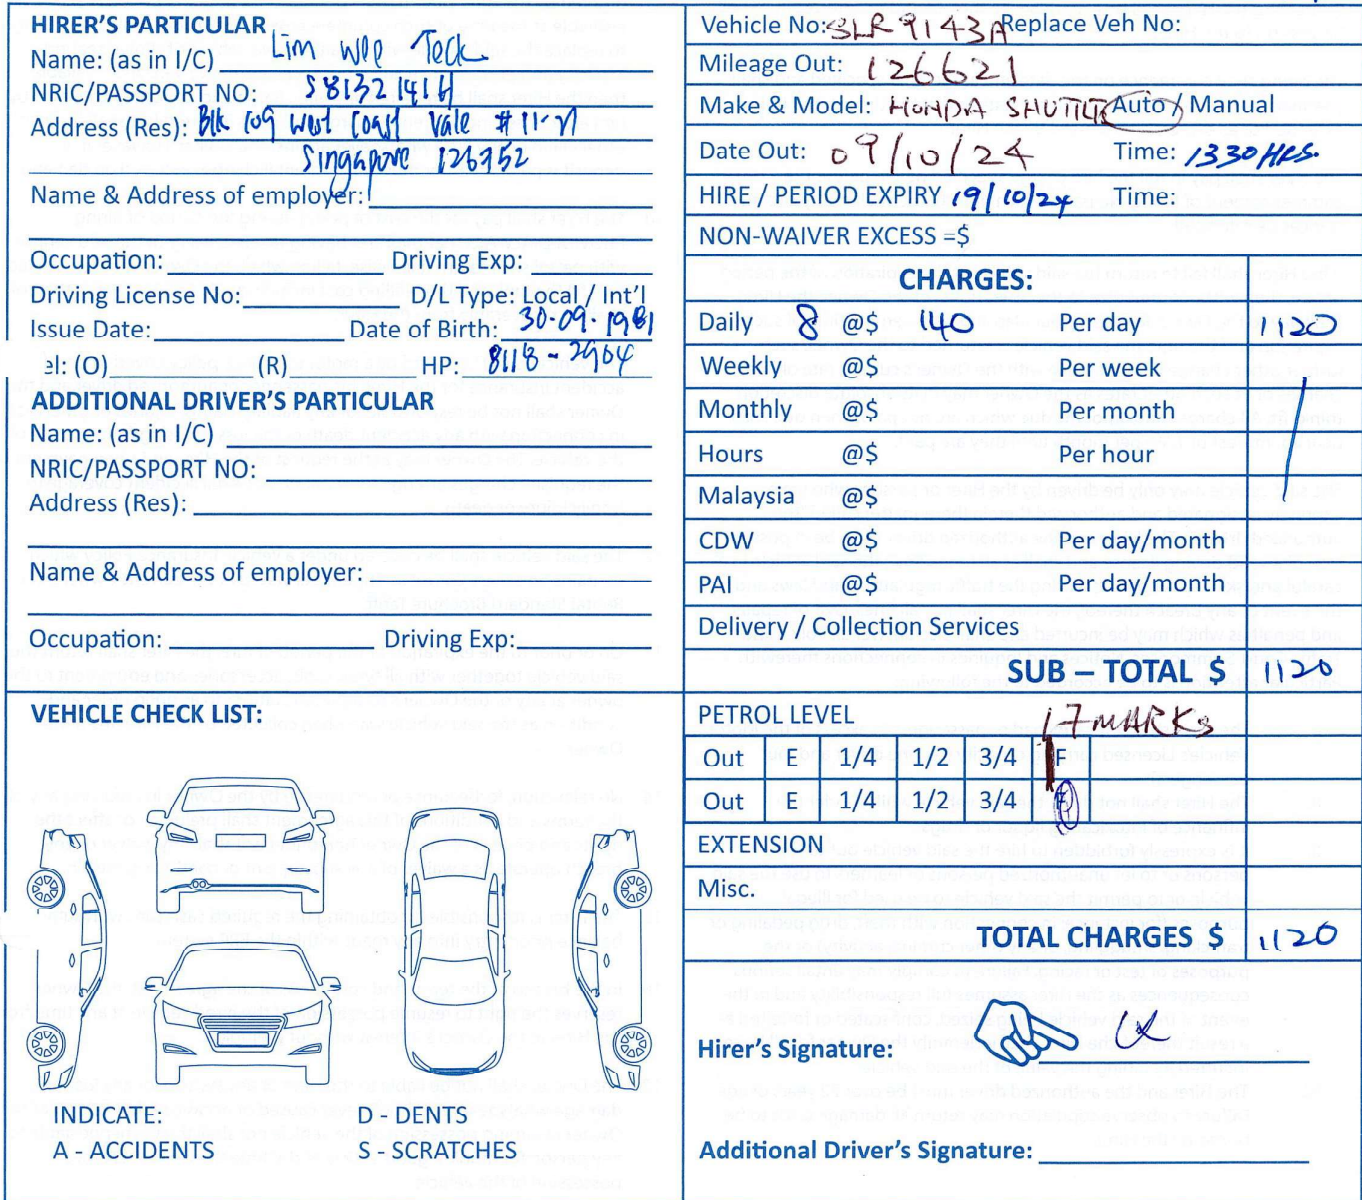 HIRER'S PARTICULAR
Name: (as in I/C) Lim Wee Teck
NRIC/PASSPORT NO: S8132141H
Address (Res): Blk 609 West Coast Vale #11-21
Singapore 126752
Name & Address of employer:
Occupation: Driving Exp:
Driving License No: D/L Type: Local / Int'l
Issue Date: Date of Birth: 30-09-1981
el: (O) (R) HP: 8118-2904
ADDITIONAL DRIVER'S PARTICULAR
Name: (as in I/C)
NRIC/PASSPORT NO:
Address (Res):
Name & Address of employer:
Occupation: Driving Exp:
VEHICLE CHECK LIST:
INDICATE: D - DENTS
A - ACCIDENTS S - SCRATCHES
Vehicle No: SLR9143A Replace Veh No:
Mileage Out: 126621
Make & Model: HONDA SHUTTLE Auto / Manual
Date Out: 09/10/24 Time: 1330HRS.
HIRE / PERIOD EXPIRY 19/10/24 Time:
NON-WAIVER EXCESS =$
CHARGES:
Daily 8 @$ 140 Per day 1120
Weekly @$ Per week
Monthly @$ Per month
Hours @$ Per hour
Malaysia @$
CDW @$ Per day/month
PAI @$ Per day/month
Delivery / Collection Services
SUB – TOTAL $ 1120
PETROL LEVEL 17 MARKS
Out E 1/4 1/2 3/4 F
Out E 1/4 1/2 3/4 F
EXTENSION
Misc.
TOTAL CHARGES $ 1120
Hirer's Signature:
Additional Driver's Signature: